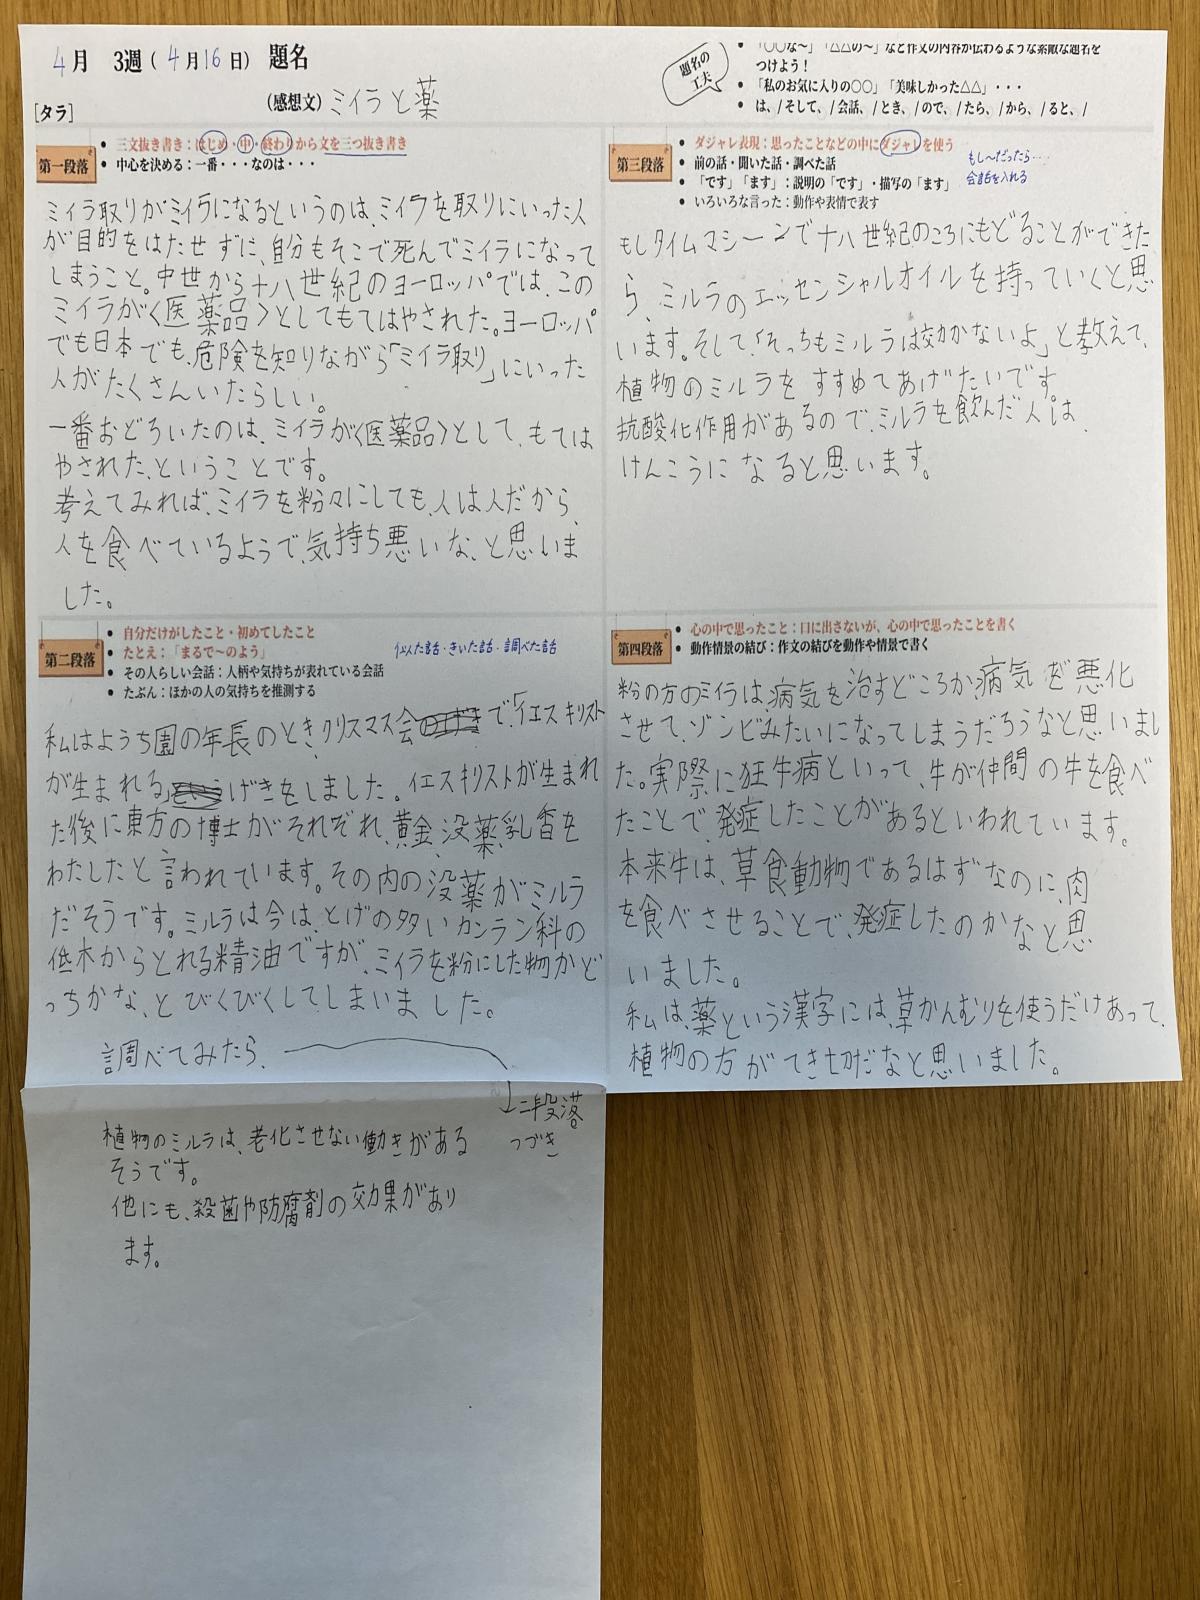 4月 3週(4月16日) 題名
(感想文) ミイラと薬
[タラ]
題名の
工夫
• 「○○な～」「△△の～」など作文の内容が伝わるような素敵な題名を
つけよう！
• 「私のお気に入りの○○」「美味しかった△△」・・・
• は、/そして、/会話、/とき、/ので、/たら、/から、/ると、/
第一段落
• 三文抜き書き：はじめ・中・終わりから文を三つ抜き書き
• 中心を決める：一番・・・なのは・・・
ミイラ取りがミイラになるというのは、ミイラを取りにいった人
が目的をはたせずに、自分もそこで死んでミイラになって
しまうこと。中世から十八世紀のヨーロッパでは、この
ミイラが〈医薬品〉としてもてはやされた。ヨーロッパ
でも日本でも、危険を知りながら「ミイラ取り」にいった
人がたくさんいたらしい。
一番おどろいたのは、ミイラが〈医薬品〉として、もては
やされた、ということです。
考えてみれば、ミイラを粉々にしても、人は人だから、
人を食べているようで、気持ち悪いな、と思いま
した。
第二段落
• 自分だけがしたこと・初めてしたこと
• たとえ：「まるで～のよう」
• その人らしい会話：人柄や気持ちが表れている会話
• たぶん：ほかの人の気持ちを推測する
・きいた話・調べた話
私はようち園の年長のとき、クリスマス会で、「イエスキリスト
が生まれる」げきをしました。イエスキリストが生まれ
た後に東方の博士がそれぞれ、黄金、没薬、乳香を
わたしたと言われています。その内の没薬がミルラ
だそうです。ミルラは今は、とげの多いカンラン科の
低木からとれる精油ですが、ミイラを粉にした物かど
っちかな、とびくびくしてしまいました。
調べてみたら、
二段落
つづき
植物のミルラは、老化させない働きがある
そうです。
他にも、殺菌や防腐剤の効果があり
ます。
第三段落
• ダジャレ表現：思ったことなどの中にダジャレを使う
• 前の話・聞いた話・調べた話
• 「です」「ます」：説明の「です」・描写の「ます」
• いろいろな言った：動作や表情で表す
もし～だったら…
会話を入れる
もしタイムマシーンで十八世紀のころにもどることができた
ら、ミルラのエッセンシャルオイルを持っていくと思
います。そして、「そっちもミルラは効かないよ」と教えて、
植物のミルラをすすめてあげたいです。
抗酸化作用があるので、ミルラを飲んだ人は、
けんこうになると思います。
第四段落
• 心の中で思ったこと：口に出さないが、心の中で思ったことを書く
• 動作情景の結び：作文の結びを動作や情景で書く
粉の方のミイラは、病気を治すどころか、病気を悪化
させて、ゾンビみたいになってしまうだろうなと思いまし
た。実際に狂牛病といって、牛が仲間の牛を食べ
たことで、発症したことがあるといわれています。
本来牛は、草食動物であるはずなのに、肉
を食べさせることで、発症したのかなと思
いました。
私は、薬という漢字には、草かんむりを使うだけあって、
植物の方がてき切だなと思いました。